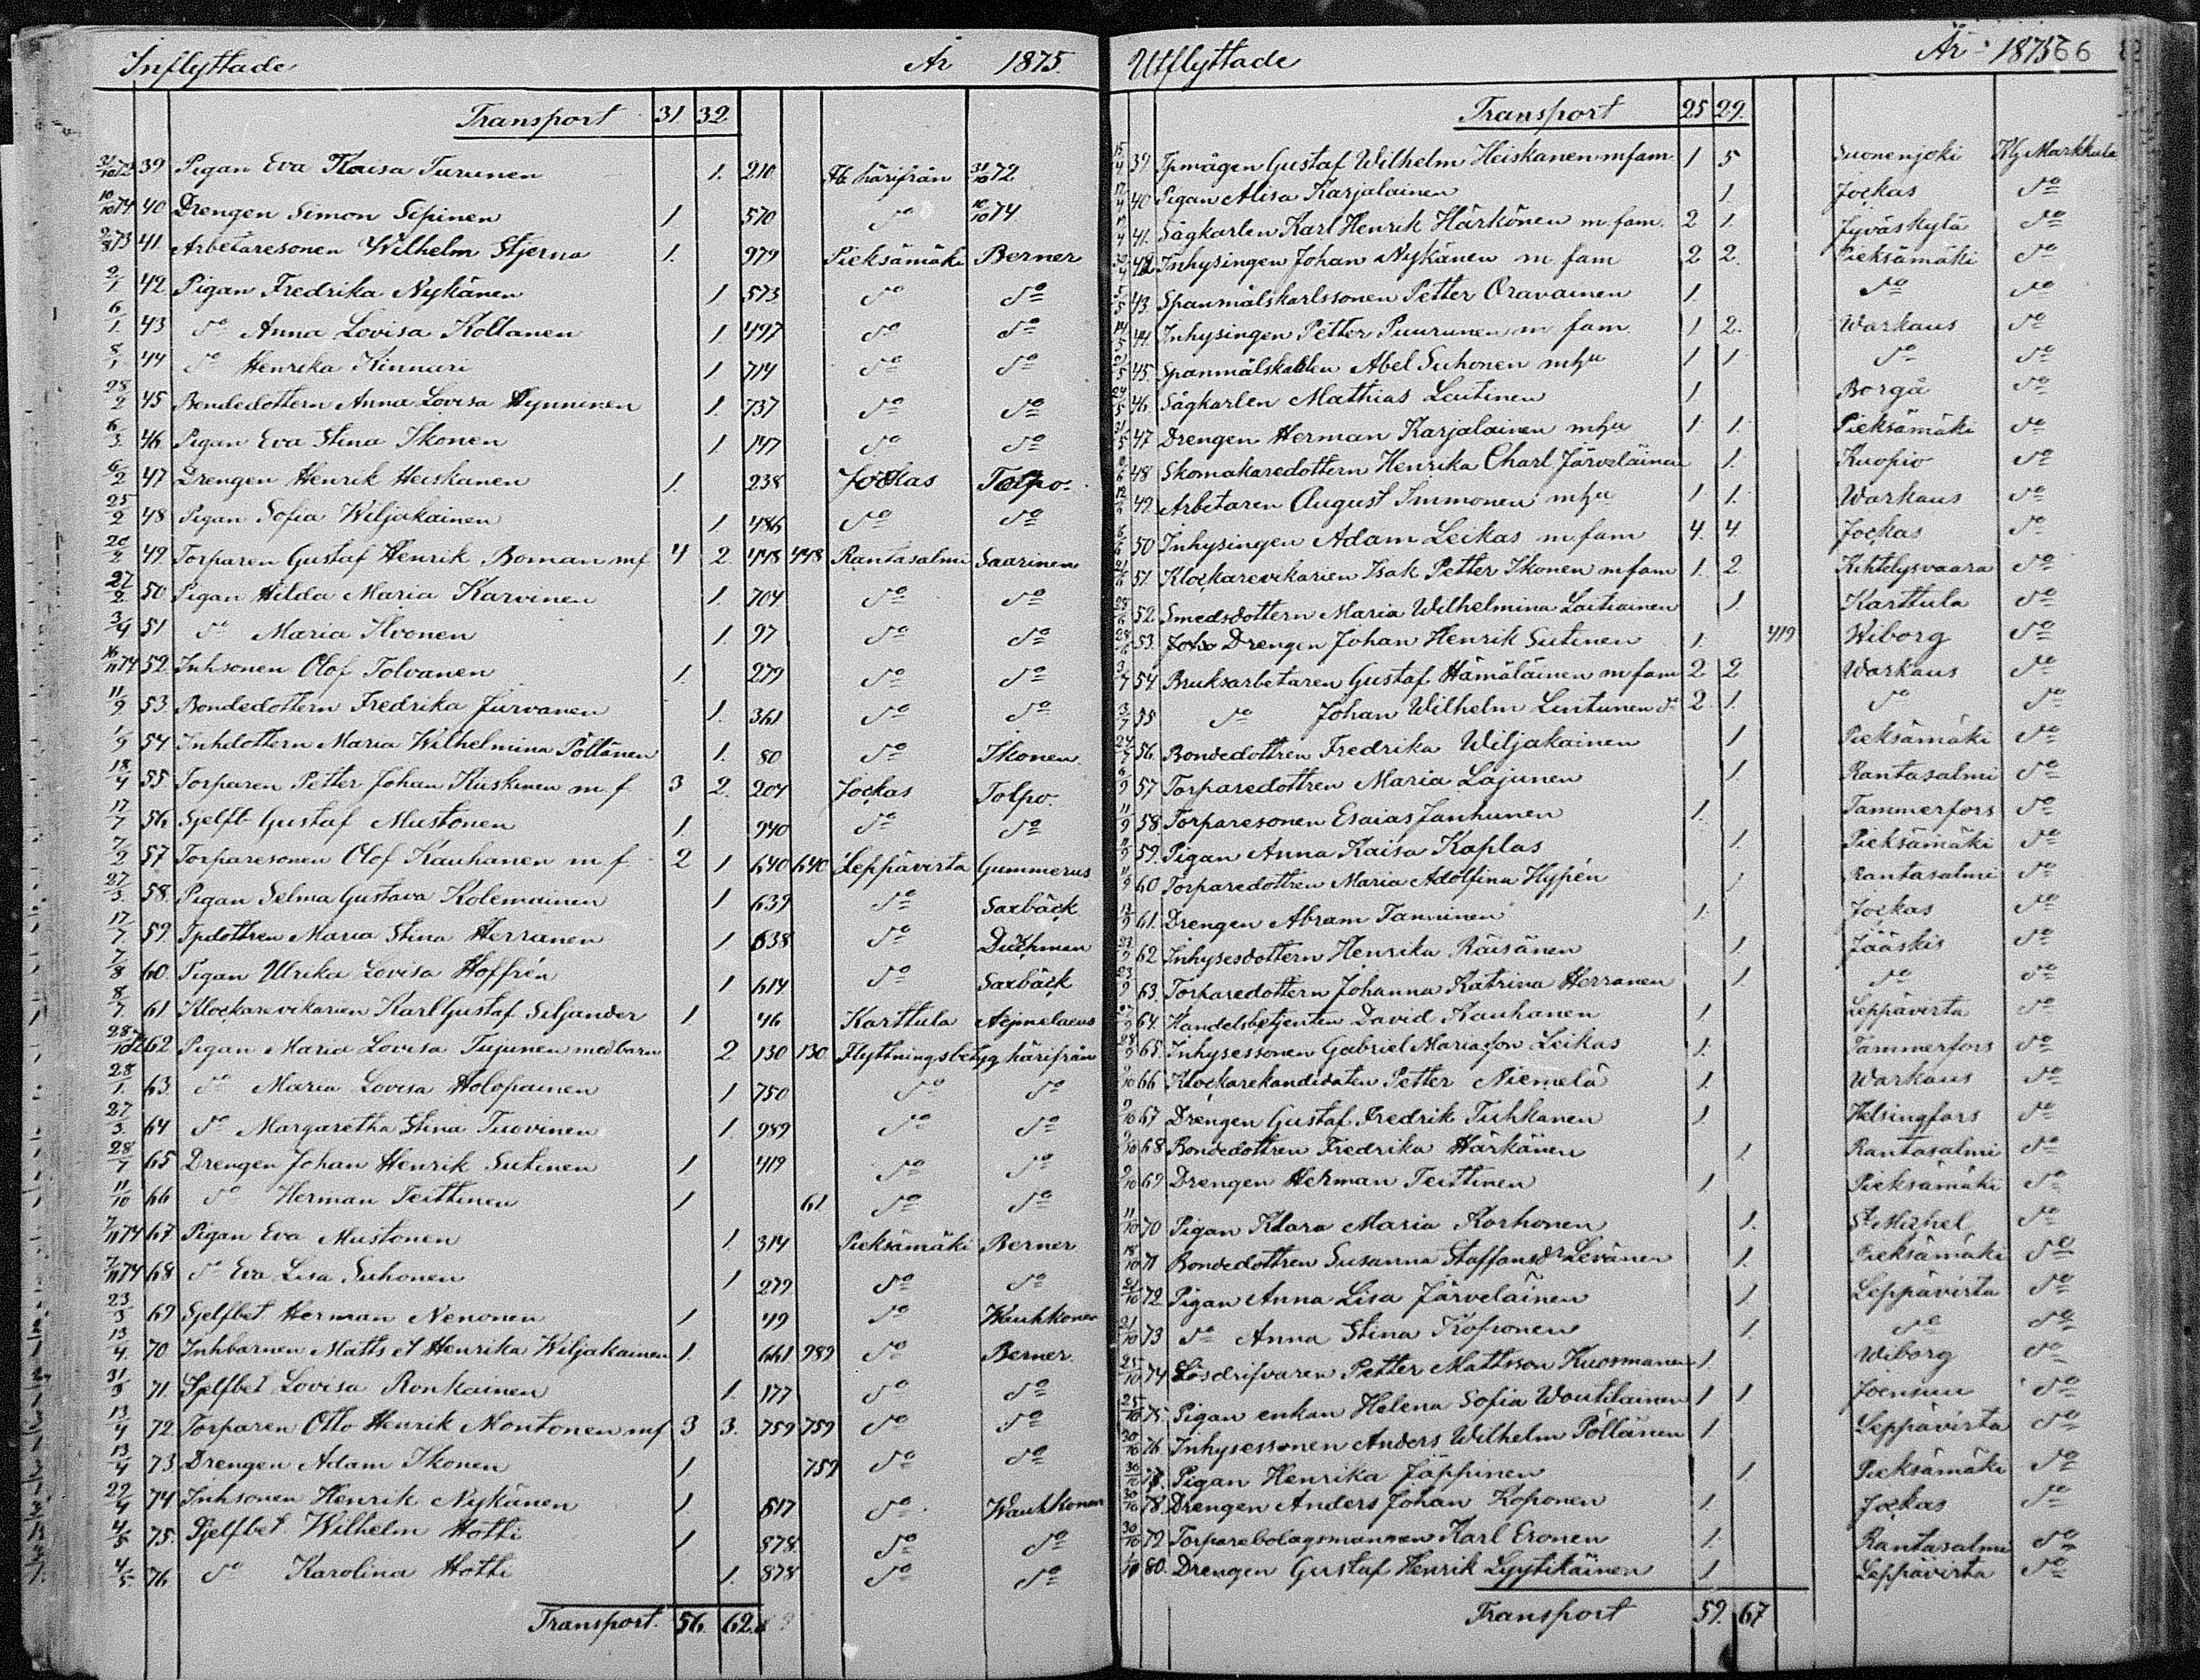 Inflyttade År 1875.
Transport 31 32
31/10 72 39 Pigan Eva Kaisa Turunen 1. 210 Fb härifrån 31/10 72
10/10 74 40 Drengen Simon Sipinen 1. 570 do 10/10 74
2/8 73 41. Arbetaresonen Wilhelm Stjerna 1. 979 Pieksämäki Berner
2/1 42 Pigan Fredrika Nykänen 1 573 do do
6/1 43 do Anna Lovisa Koltanen 1 497 do do
8/1 44 do Henrika Kinnari 1. 714 do do
28/2 45 Bondedottern Anna Lovisa Hynninen 1. 737 do do
6/3 46 Pigan Eva Stina Ikonen 1 147 do do
6/2 47 Drengen Henrik Heiskanen 1. 238 Jockas Tolpo.
25/2 48 Pigan Sofia Wiljakainen 1 486 do do
20/2 49 Torparen Gustaf Henrik Boman mf 4 2. 448 448 Rantasalmi Saarinen
27/2 50 Pigan Hilda Maria Karvinen 1. 704 do do
3/4 51 do Maria Ilvonen 1. 97 do do
16/11 74 52 Inhsonen Olof Tolvanen 1. 279 do do
11/9 53. Bondedottern Fredrika Jurvanen 1. 361 do do
1/9 54 Inhdottern Maria Wilhelmina Pöllänen 1. 80 do Ikonen
18/4 55 Torparen Petter Johan Kiiskinen m f 3 2. 204 Jockas Tolpo.
17/7 56 Sjelfb Gustaf Mustonen 1. 940 do do
7/2 57 Torparesonen Olof Kauhanen m f 2 1 640 640 Leppävirta Gummerus
27/3 58. Pigan Selma Gustava Kolemainen 1 639 do Saxbäck
17/7 59. Tpdottren Maria Stina Herranen 1 638 do Dickman
7/8 60 Pigan Ulrika Lovisa Hoffrén 1 614 do Saxbäck
8/7 61 Klockarevikarien Karl Gustaf Siljander 1 46 Karttula Aejmelaeus
28/10 72 62 Pigan Maria Lovisa Tujunen med barn 2 130 130 Flyttningsbetyg härifrån
28/1 63. do Maria Lovisa Holopainen 1 750 do do
27/3 64 do Margaretha Stina Tuovinen 1. 989 do do
28/7 65 Drengen Johan Henrik Sutinen 1 419 do do
11/10 66 do Herman Teittinen 1 61 do do
7/11 74 67 Pigan Eva Mustonen 1. 314 Pieksämäki Berner
7/11 74 68 do Eva Lisa Suhonen 1 279 do do
23/3 69 Sjelfbet. Herman Nenonen 1 49 do Wauhkonen
13/4 70 Inhbarnen Matts & Henrika Wiljakainen 1. 661 989 do Berner
31/3 71. Sjelfbet Lovisa Ronkainen 1. 177 do do
13/4 72 Torparen Otto Henrik Montonen mf 3 3. 759 759 do do
13/4 73 Drengen Adam Ikonen 1 759 do do
29/4 74 Inhsonen Henrik Nykänen 1. 617 do Wauhkonen
4/5 75. Sjelfbet Wilhelm Hotti 1 878 do do
4/5 76 do Karolina Hotti 1. 878 do do
Transport. 56. 62.
Utflyttade År 1875 66
Transport 25 29.
15/4 39. Tpmågen Gustaf Wilhelm Heiskanen mfam 1 5 Suonenjoki Markkula
17/4 40 Pigan Alisa Karjalainen 1 Jockas do
41. Sågkarlen Karl Henrik Härkönen m fam. 2 1. Jyväskylä do
30/4 42 Inhysingen Johan Nykänen m fam 2 2. Pieksämäki do
5/5 43. Spanmålskarlssonen Petter Oravainen 1. do do
14/5 44. Inhysingen Petter Puurunen m fam 1 2. Warkaus do
45. Spanmålskarlen Abel Suhonen mhu 1 1 do do
24/5 46. Sågkarlen Mathias Leutinen 1 Borgå do
31/5 47 Drengen Herman Karjalainen mhu 1 1 Pieksämäki do
48 Skomakaredottern Henrika Charl Järveläinen 1. Kuopio do
12/6 49. Arbetaren August Immonen mhu 1 1. Warkaus do
50 Inhysingen Adam Leikas m fam 4. 4. Jockas do
21/6 51. Klockarevikarien Isak Petter Ikonen mfam 1. 2 Kihtelysvaara do
52. Smedsdottern Maria Wilhelmina Laitiainen 1 Karttula do
53. Drengen Johan Henrik Sutinen 1. 419 Wiborg do
3/7 54 Bruksarbetaren Gustaf Hämäläinen mfam 2 2 Warkaus do
3/7 55 do Johan Wilhelm Lintunen do 2. 1. do do
24/7 56. Bondedottren Fredrika Wiljakainen 1 Pieksämäki do
6/9 57 Torparedottren Maria Lajunen 1. Rantasalmi do
11/9 58 Torparesonen Esaias Janhunen 1. Tammerfors do
59. Pigan Anna Kaisa Kaplas 1. Pieksämäki do
11/9 60 Torparedottren Maria Adolfina Hypén 1 Rantasalmi do
13/9 61. Drengen Abram Tanninen 1. Jockas do
23/9 62 Inhysesdottern Henrika Räisänen 1. Jääskis do
23/9 63. Torparedottern Johanna Katrina Herranen 1. do do
64. Handelsbetjenten David Kauhanen 1 Leppävirta do
65. Inhysessonen Gabriel Mariason Leikas 1. Tammerfors do
66 Klockarekandidaten Petter Niemelä 1. Warkaus do
9/10 67 Drengen Gustaf Fredrik Tuhkanen 1 Helsingfors do
68 Bondedottren Fredrika Härkänen 1. Rantasalmi do
9/10 69 Drengen Herman Teittinen 1. Pieksämäki do
11/10 70 Pigan Klara Maria Korhonen 1. St Michel do
18/10 71 Bondedottren Susanna Staffansdr Levänen 1. Pieksämäki do
21/10 72. Pigan Anna Lisa Järveläinen 1. Leppävirta do
21/10 73 do Anna Stina Koponen 1. do do
25/10 74 Lösdrifvaren Petter Mattsson Kuosmanen 1. Wiborg do
25/10 75. Pigan enkan Helena Sofia Woutilainen 1 1 Joensuu do
30/10 76. Inhysessonen Anders Wilhelm Pöllänen 1. Leppävirta do
30/10 77. Pigan Henrika Jäppinen 1 Pieksämäki do
30/10 78. Drengen Anders Johan Koponen 1. Jockas do
30/10 79 Torparebolagsmannen Karl Eronen 1. Rantasalmi do
80. Drengen Gustaf Henrik Lyytikäinen 1 Leppävirta do
Transport 59. 67